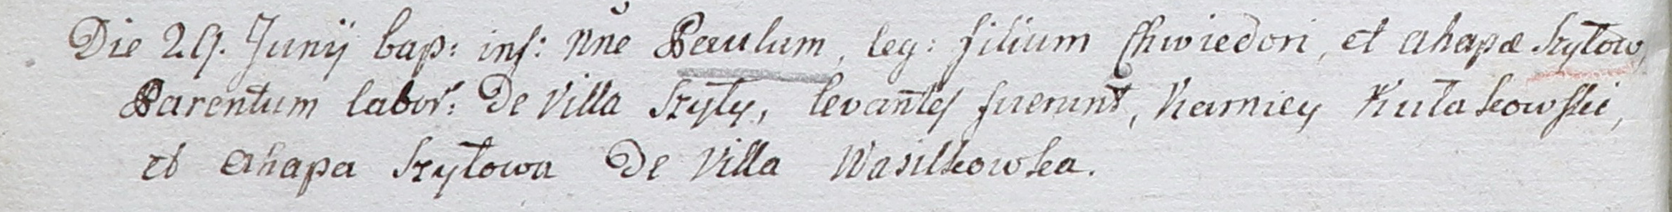 Die 29. Junij bap: inf: nñe Paulum, leg: filium Chwiedori, et Ahapæ Szyłow,
Parentum labor: De Villa Szyły, levantes fuerunt, Karniey Kułakowski,
et Ahapa Szyłowa De Villa Wasilkowka.